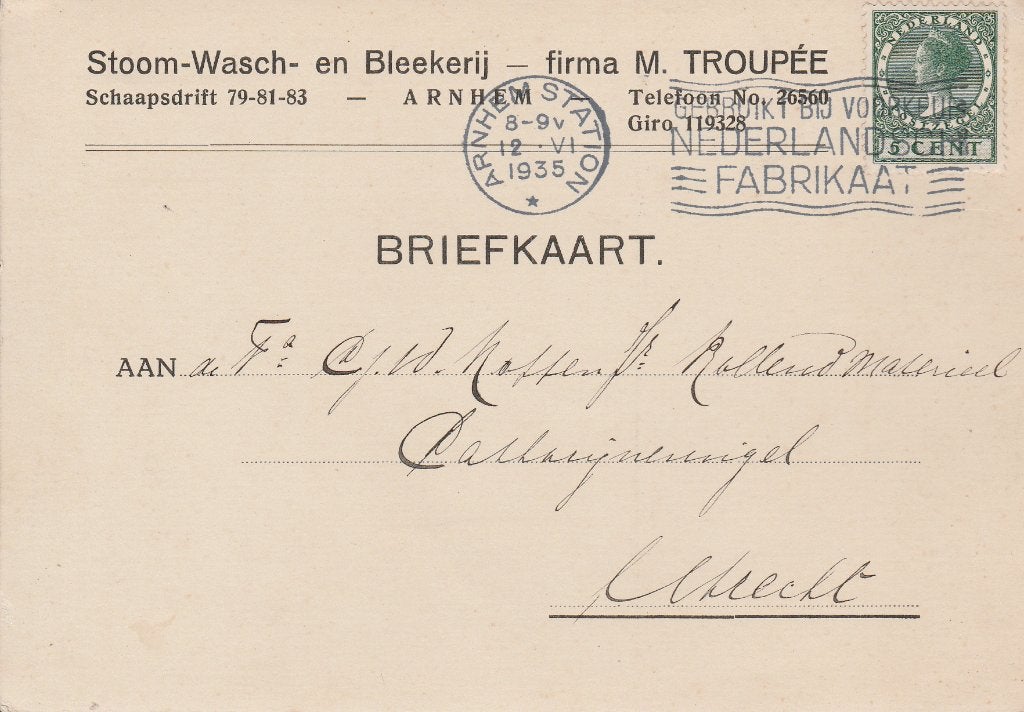 Stoom-Wasch- en Bleekerij — firma M. TROUPÉE
Schaapsdrift 79-81-83 — ARNHEM — Telefoon No. 26560
Giro 119328
NEDERLAND
POSTZEGEL
5 CENT
ARNHEM STATION
8-9V
12 · VI
1935
GEBRUIKT BIJ VOORKEUR
NEDERLANDSCH
FABRIKAAT
BRIEFKAART.
AAN de Fa. C.J.W. Hoffen Jr. Rollend Materieel
Catharijnesingel
Utrecht